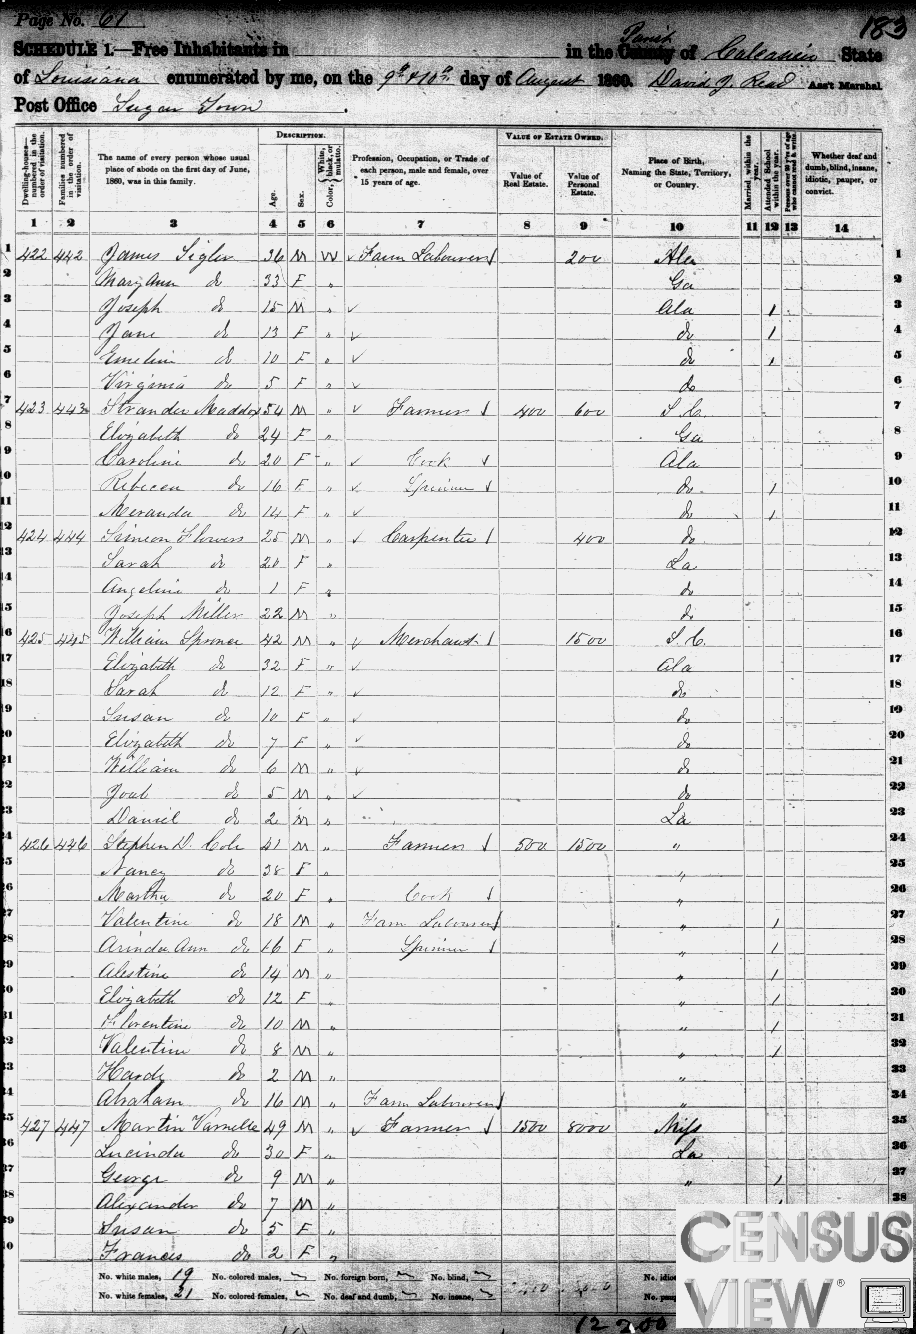 Page No. 61
183
SCHEDULE 1.—Free Inhabitants in in the County Parish of Calcasieu State
of Louisiana enumerated by me, on the 9th & 10th day of August 1860. David J. Read Ass't Marshal.
Post Office Sugar Town.
DESCRIPTION. VALUE OF ESTATE OWNED.
Dwelling-houses—numbered in the order of visitation. Families numbered in the order of visitation. The name of every person whose usual place of abode on the first day of June, 1860, was in this family. Age. Sex. Color, White, black, or mulatto. Profession, Occupation, or Trade of each person, male and female, over 15 years of age. Value of Real Estate. Value of Personal Estate. Place of Birth, Naming the State, Territory, or Country. Married within the year. Attended School within the year. Persons over 20 y'rs of age who cannot read & write. Whether deaf and dumb, blind, insane, idiotic, pauper, or convict.
1 2 3 4 5 6 7 8 9 10 11 12 13 14
1 422 442 James Sigler 36 M W Farm Labourer 200 Ala 1
2 Mary Ann do 33 F " Ga 2
3 Joseph do 15 M " Ala 1 3
4 Jane do 13 F " do 1 4
5 Emeline do 10 F " do 1 5
6 Virginia do 5 F " do 6
7 423 443 Strander Maddox 54 M " Farmer 400 600 S. C. 7
8 Elizabeth do 24 F " Ga 8
9 Caroline do 20 F " Cook Ala 9
10 Rebecca do 16 F " Spinner do 1 10
11 Meranda do 14 F " do 1 11
12 424 444 Simeon Flowers 25 M " Carpenter 400 do 12
13 Sarah do 20 F " La 13
14 Angeline do 1 F " do 14
15 Joseph Miller 22 M " do 15
16 425 445 William 42 M " Merchant 1500 S. C. 16
17 Elizabeth do 32 F " Ala 17
18 Sarah do 12 F " do 18
19 Susan do 10 F " do 19
20 Elizabeth do 7 F " do 20
21 William do 6 M " do 21
22 do 5 M " do 22
23 Daniel do 2 M " La 23
24 426 446 Stephen D. Cole 41 M " Farmer 500 1500 " 24
25 Nancy do 38 F " " 25
26 Martha do 20 F " Cook " 26
27 Valentine do 18 M " Farm Labourer " 1 27
28 Arinda Ann do 16 F " Spinner " 1 28
29 Alestine do 14 M " " 1 29
30 Elizabeth do 12 F " " 1 30
31 Florentine do 10 M " " 1 31
32 Valentine do 8 M " " 1 32
33 Hardy do 2 M " " 33
34 Abraham do 16 M " Farm Labourer " 34
35 427 447 Martin 49 M " Farmer 1500 8000 Miss 35
36 Lucinda do 30 F " La 36
37 George do 9 M " " 1 37
38 Alexander do 7 M " 38
39 Susan do 5 F "
40 Frances do 2 F "
No. white males, 19 No. colored males, No. foreign born, No. blind, No. idiotic
No. white females, 21 No. colored females, No. deaf and dumb, No. insane,
12 200
CENSUS
VIEW®